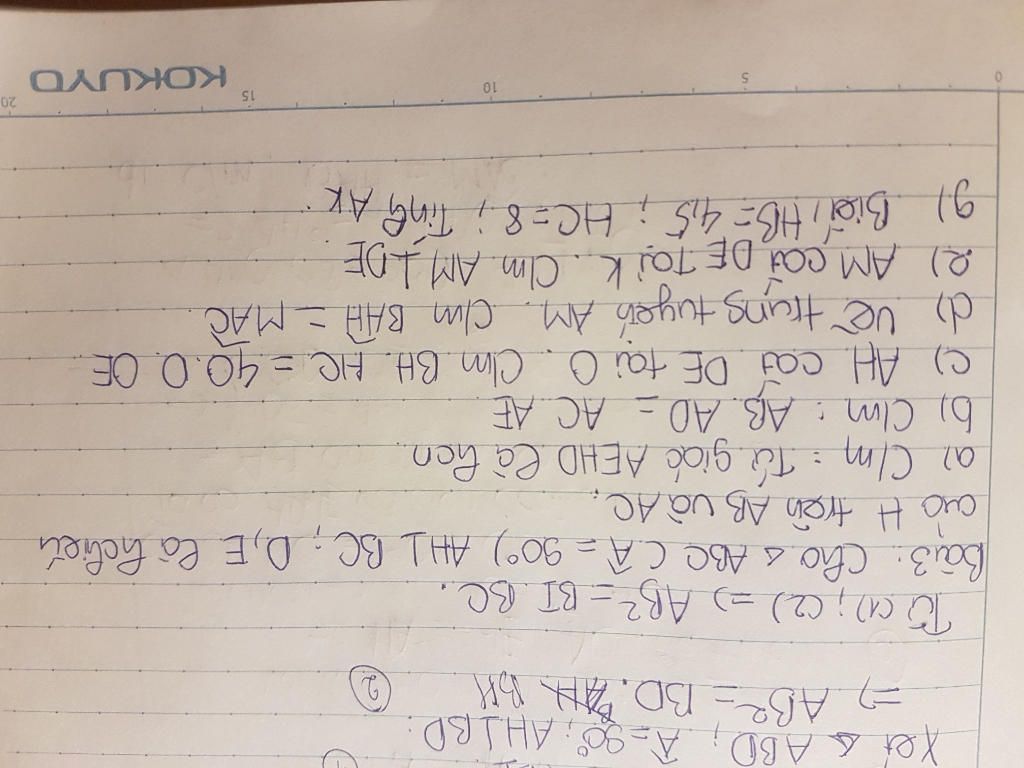 Xét △ ABD; Â = 90°; AH⊥BD.
⇒ AB² = BD. BH ②
Từ (1); (2) ⇒ AB² = BI. BC.
Bài 3: Cho △ ABC (Â = 90°) AH⊥ BC; D, E là hchiếu
của H trên AB và AC.
a) C/m: Tứ giác AEHD là hcn.
b) C/m: AB. AD = AC. AE
c) AH cắt DE tại O. C/m BH. HC = 4O.D OE
d) Vẽ trung tuyến AM. C/m BAH = MAC.
e) AM cắt DE tại K. C/m AM ⊥ DE
g) Biết HB = 4,5; HC = 8; Tính AK.
0 5 10 15 20
KOKUYO